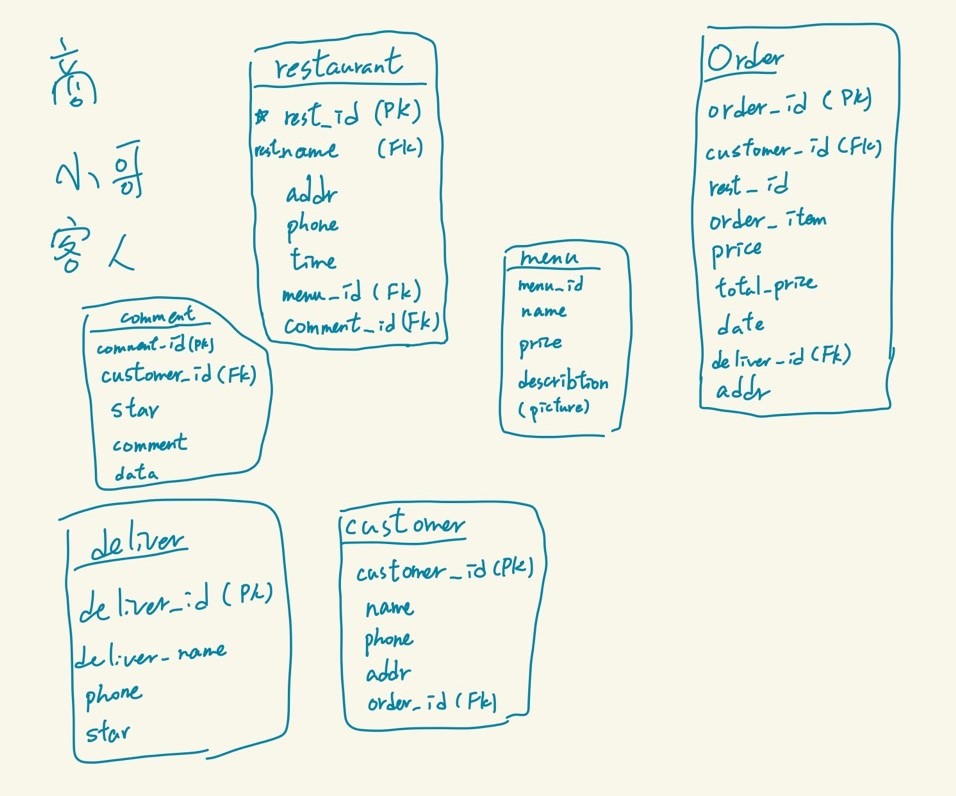 商
小哥
客人
restaurant
* rest_id (PK)
restname (FK)
addr
phone
time
menu_id (FK)
comment_id (FK)
Order
order_id (PK)
customer_id (FK)
rest_id
order_item
price
total_prize
date
deliver_id (FK)
addr
menu
menu_id
name
prize
describtion
(picture)
comment
comment_id (PK)
customer_id (FK)
star
comment
data
deliver
deliver_id (PK)
deliver_name
phone
star
customer
customer_id (PK)
name
phone
addr
order_id (FK)